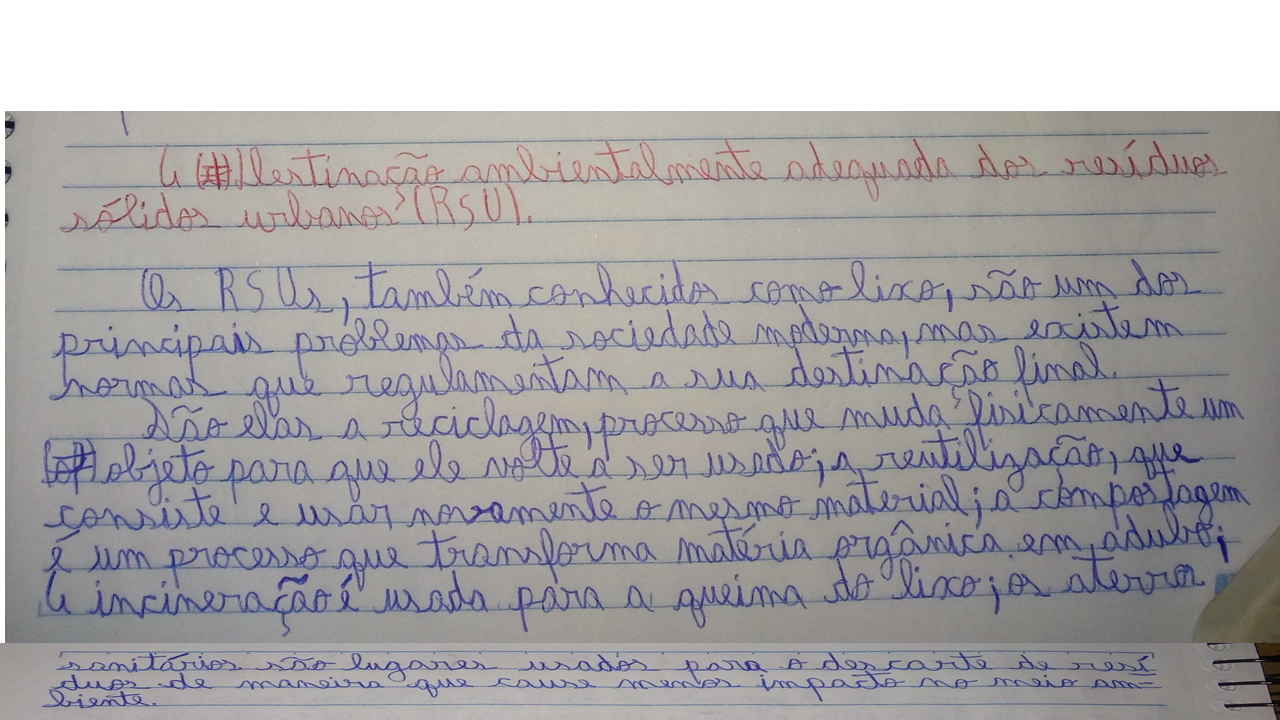 A (#) Destinação ambientalmente adequada dos resíduos
sólidos urbanos (RSU).
Os RSUs, também conhecidos como lixo, são um dos
principais problemas da sociedade moderna, mas existem
normas que regulamentam a sua destinação final.
São elas a reciclagem, processo que muda fisicamente um
objeto para que ele volte a ser usado; a reutilização, que
consiste e usar novamente o mesmo material; a compostagem
é um processo que transforma matéria orgânica em adubo;
A incineração é usada para a queima do lixo; os aterros
sanitários são lugares usados para o descarte de resí
duos de maneira que cause menos impacto no meio am-
biente.